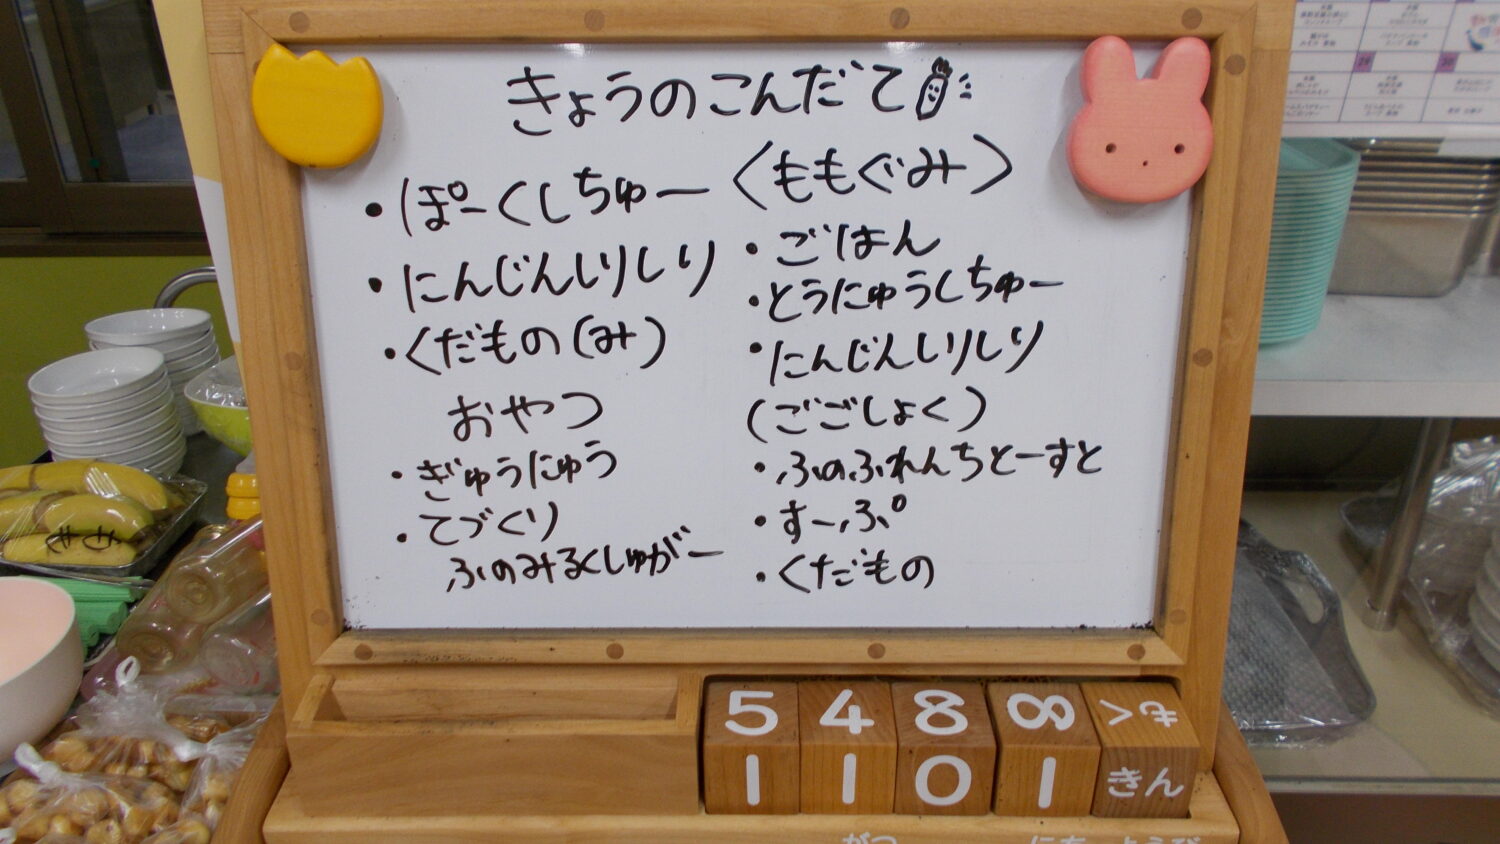 きょうのこんだて
・ぽーくしちゅー
・にんじんしりしり
・くだもの(み)
おやつ
・ぎゅうにゅう
・てづくり
ふのみるくしゅがー
〈ももぐみ〉
・ごはん
・とうにゅうしちゅー
・にんじんしりしり
(ごごしょく)
・ふのふれんちとーすと
・すーぷ
・くだもの
5 4 8 8 もく
1 1 0 1 きん
がつ にち ようび